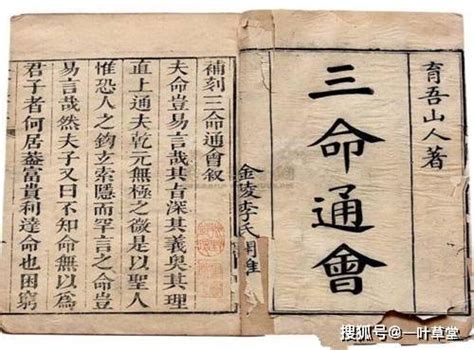 育吾山人著
三命通會
金陵李氏
補刻三命通會叙
夫命豈易言哉其旨深其義奧其理
直上通夫乾元無極之微是以聖人
惟恐人之鉤玄索隱而罕言之命豈
易言哉然夫子又曰不知命無以爲
君子者何居葢富貴利達命也困窮
搜狐号@一叶草堂